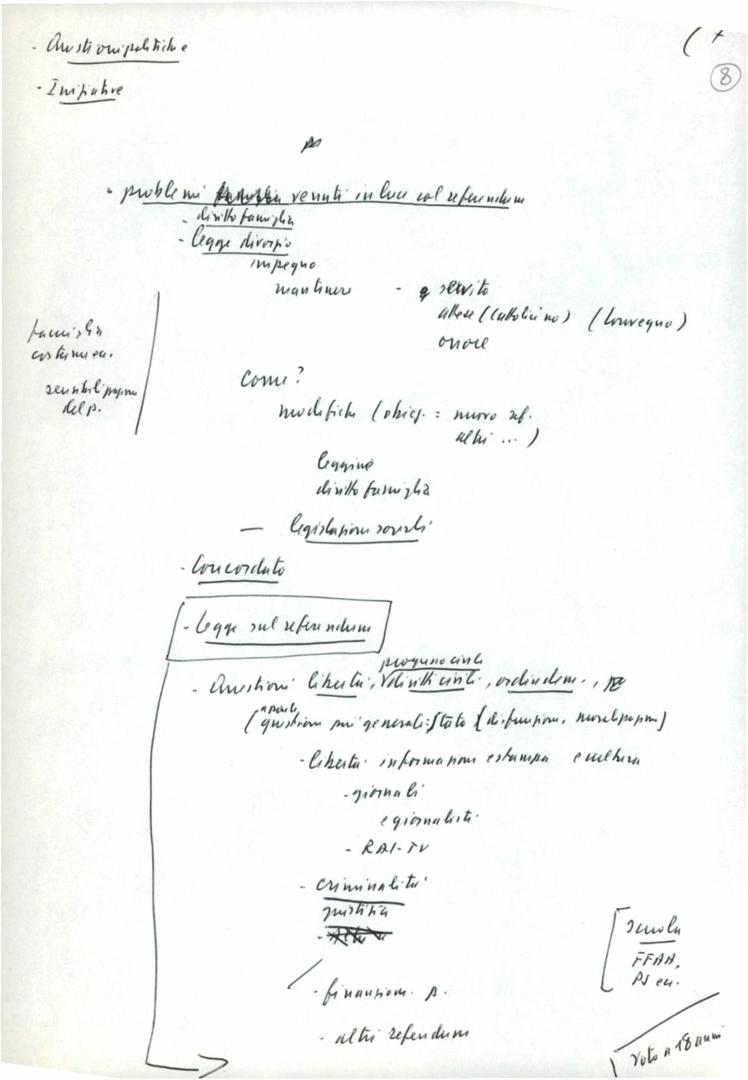 - Questioni politiche
- Iniziative
( +
8
- problemi venuti in luce col referendum
- diritto famiglia
- legge divorzio
impegno
mantenere - servito
attese (Cattolici no) (Convegno)
onore
famiglia
costume ecc.
del p.
Come?
modifiche (obiez. = nuovo ref.
altri ... )
leggine
diritto famiglia
— legislazioni sociali
- Concordato
- Legge sul referendum
progresso civile
- Questioni libertà, diritti civili, ordin dem.,
(questioni più generali: Stato (disfunzioni, moralizzazioni)
- libertà informazione e stampa e cultura
- giornali
e giornalisti
- RAI-TV
- criminalità
giustizia
- finanziam. p.
- altri referendum
scuola
FFAA,
PS ecc.
Voto a 18 anni